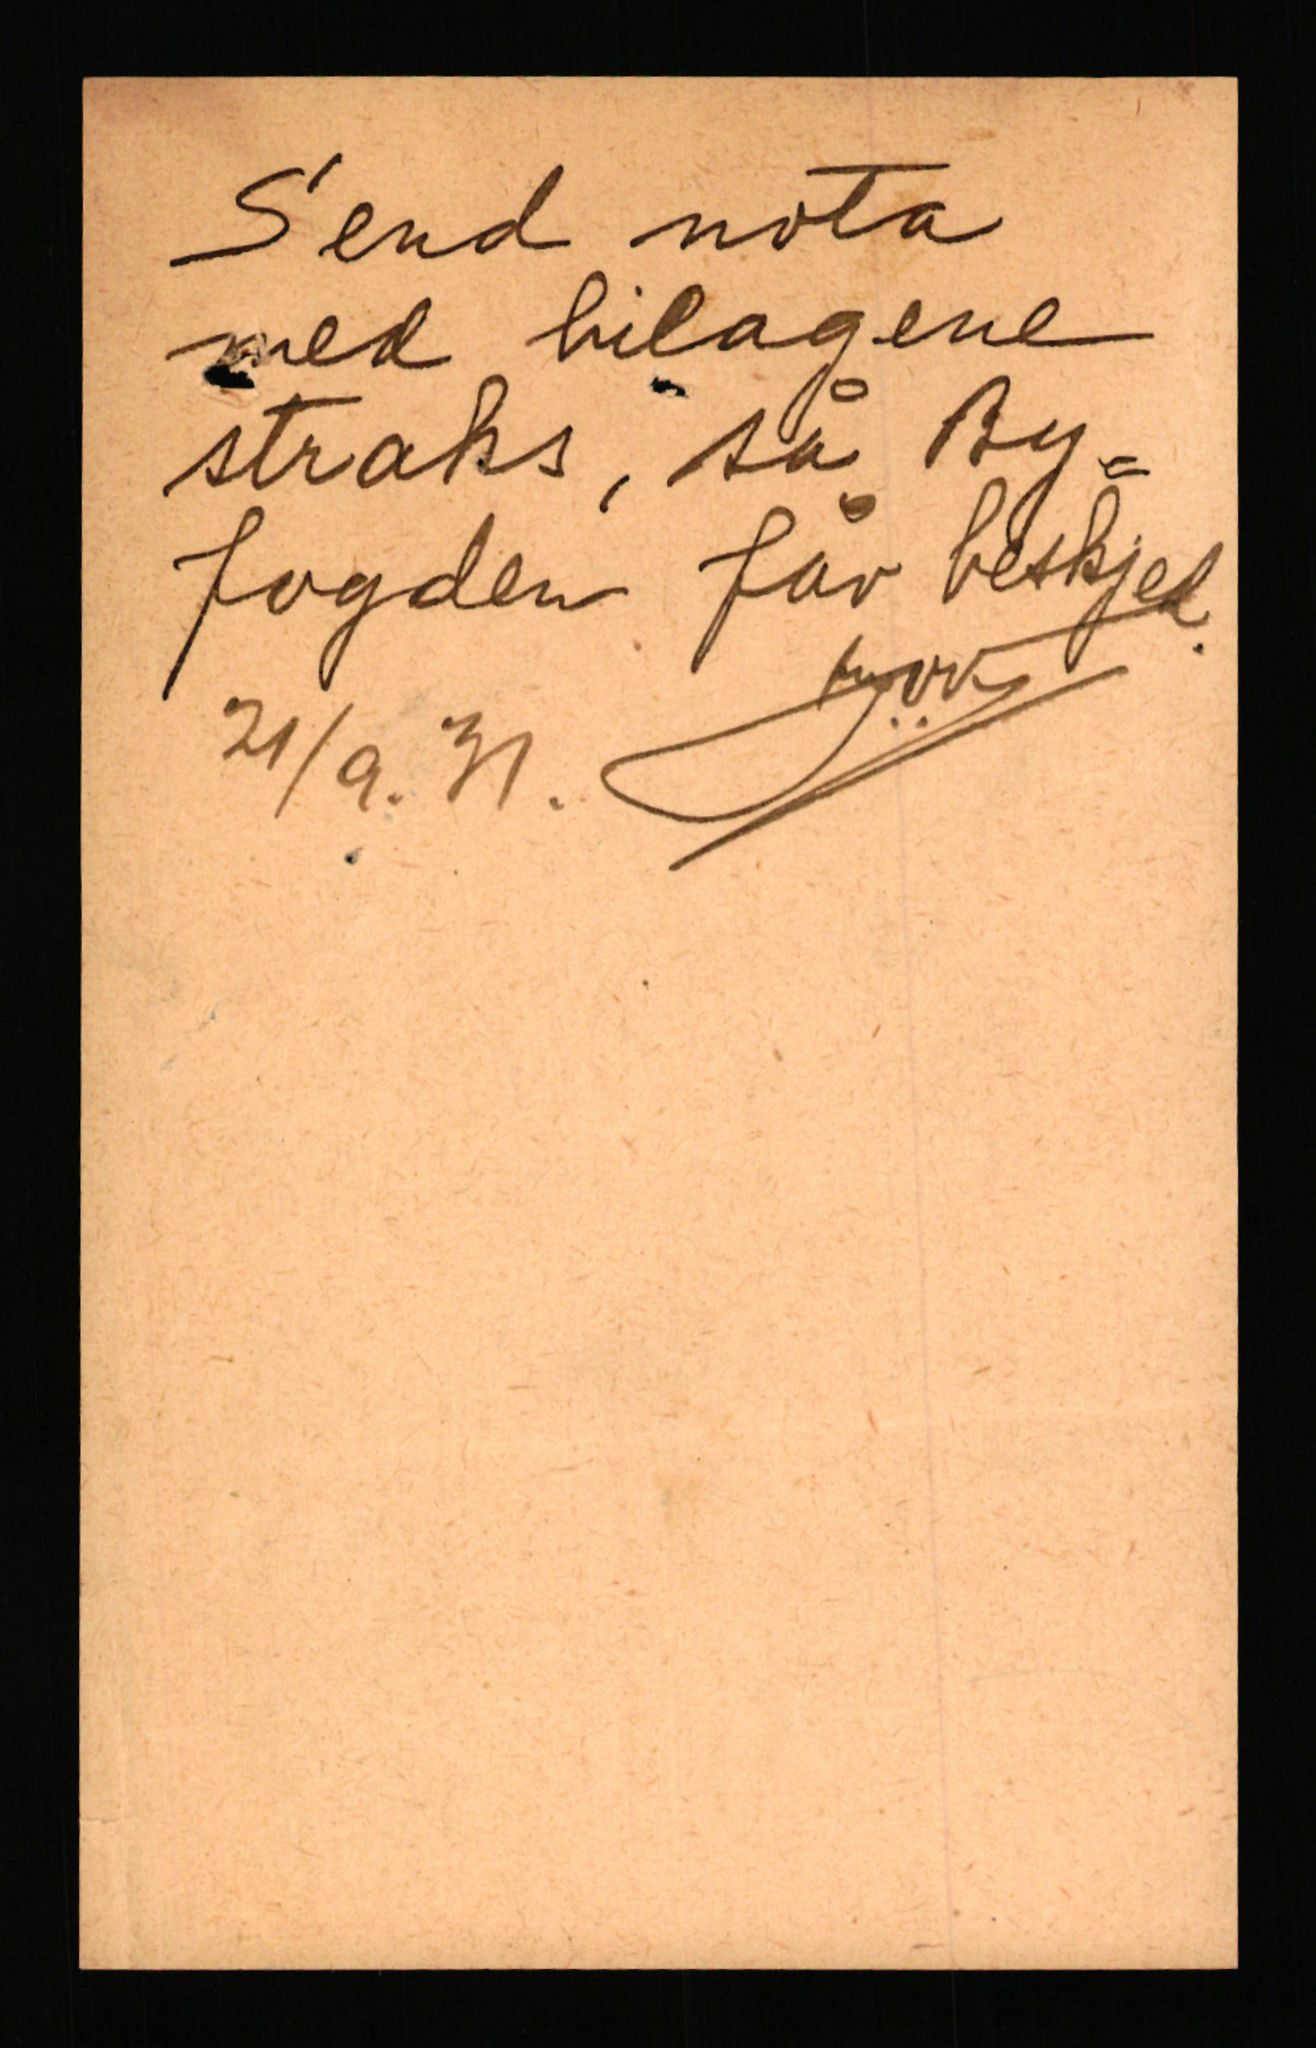 Send nota
med bilagene
straks, så By=
fogden får beskjed.
21/9. 31.